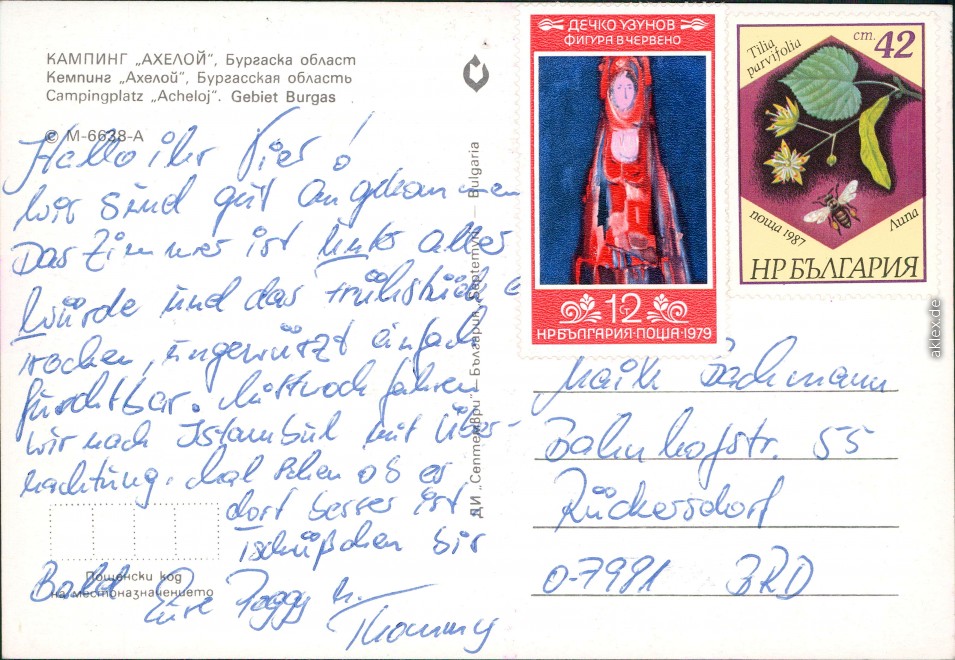 КАМПИНГ „АХЕЛОЙ“, Бургаска област
Кемпинг „Ахелой“, Бургасская область
Campingplatz „Acheloj“. Gebiet Burgas
© М-6638-А
Hallo ihr Vier!
Wir sind gut angekommen
Das Zimmer ist unter aller
Würde und das Frühstück
trocken, ungewürzt einfach
furchtbar. Mittwoch fahren
wir nach Istambul mit Über-
nachtung. Mal sehen ob es
dort besser ist
Tschüßchen bis
Bald Eure Peggy u.
Thommy
Пощенски код
на местоназначението
ДИ „Септември“ — България Septemvri — Bulgaria
ДЕЧКО УЗУНОВ
ФИГУРА В ЧЕРВЕНО
12 СТ
НР БЪЛГАРИЯ·ПОЩА·1979
Tilia
parvifolia
ст. 42
поща 1987
Липа
НР БЪЛГАРИЯ
Maik Bachmann
Bahnhofstr. 55
Rückersdorf
O-7981 BRD
aklex.de